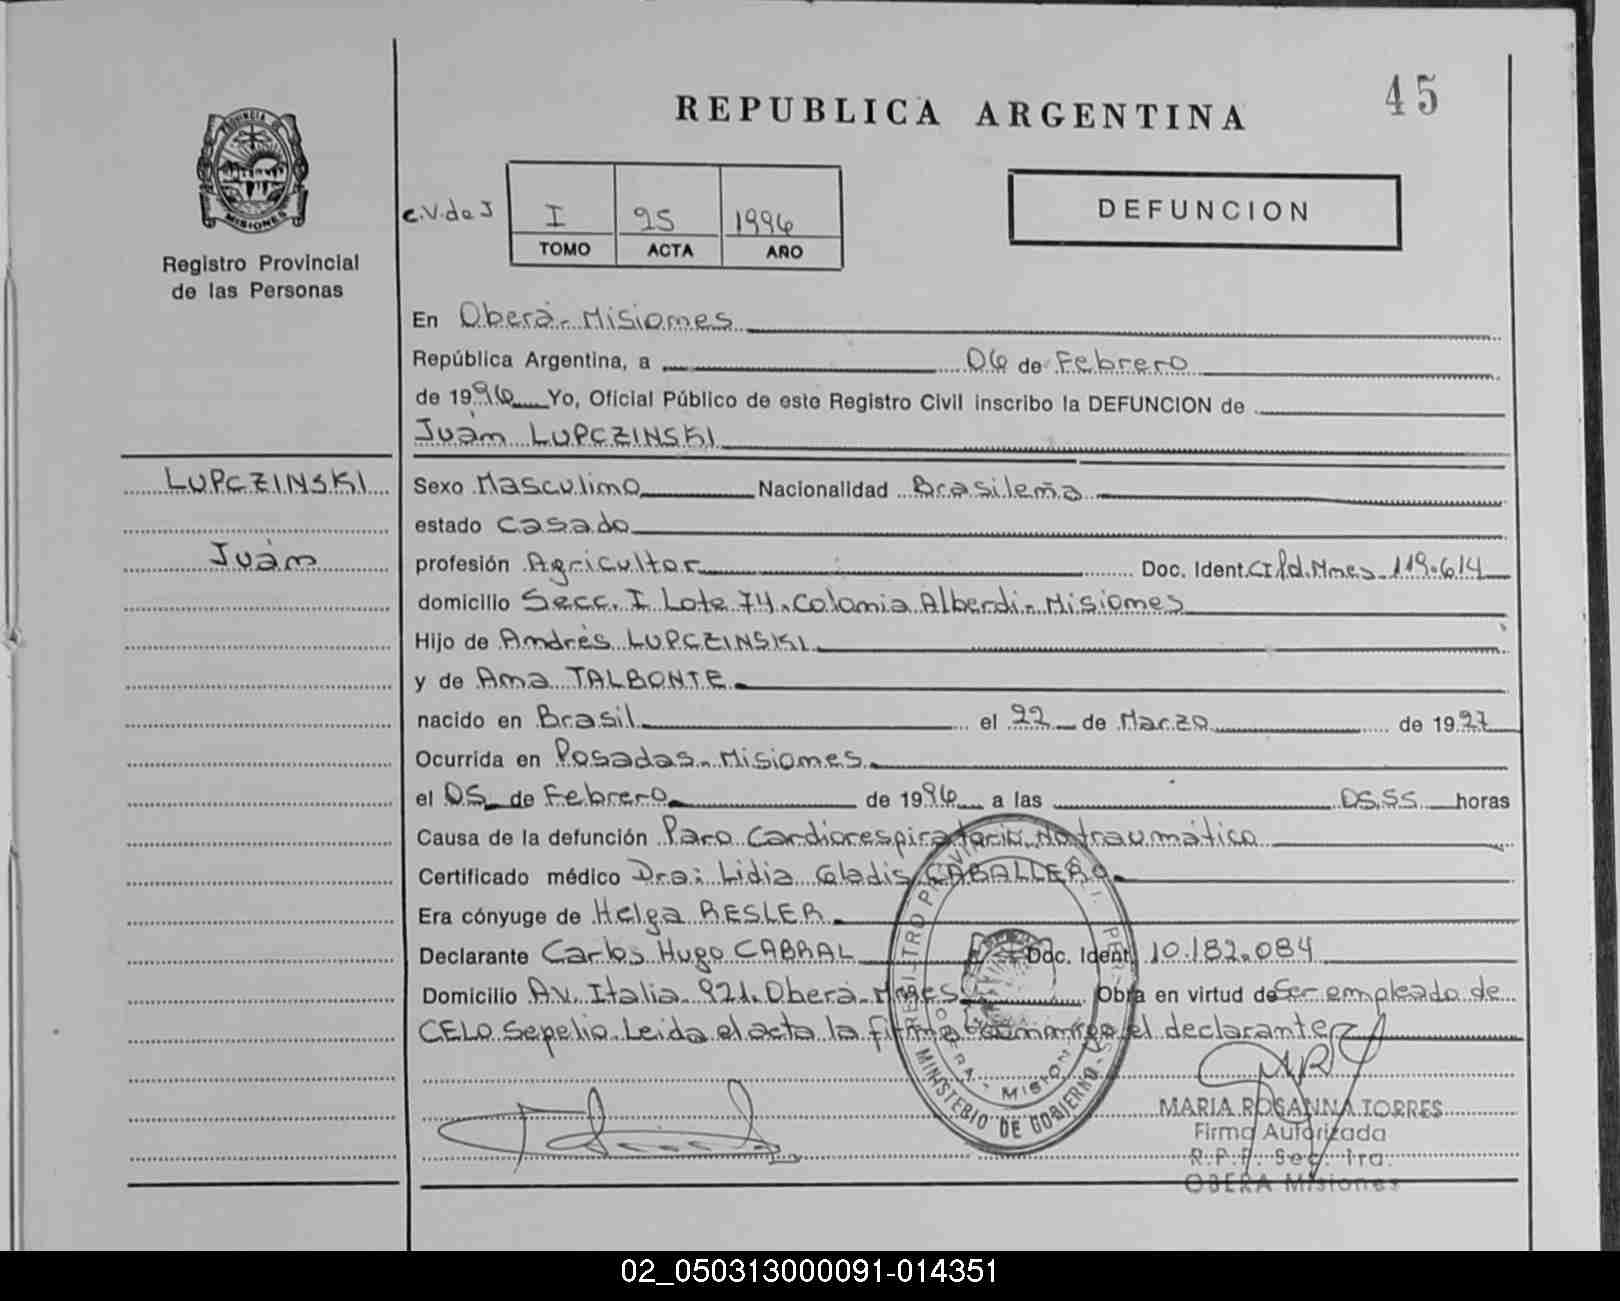 45
REPUBLICA ARGENTINA
PROVINCIA DE
MISIONES
Registro Provincial
de las Personas
C.V.de J
I 25 1996
TOMO ACTA AÑO
DEFUNCION
En Oberá - Misiones
República Argentina, a 06 de Febrero
de 1996 Yo, Oficial Público de este Registro Civil inscribo la DEFUNCION de
Juán LUPCZINSKI
LUPCZINSKI
Juán
Sexo Masculino Nacionalidad Brasileña
estado Casado
profesión Agricultor Doc. Ident. CI Pd. Mnes 119.614
domicilio Secc. I Lote 74. Colonia Alberdi - Misiones
Hijo de Andrés LUPCZINSKI
y de Ana TALBONTE
nacido en Brasil el 22 de Marzo de 1927
Ocurrida en Posadas - Misiones
el 05 de Febrero de 1996 a las 05,55 horas
Causa de la defunción Paro Cardiorespiratorio No traumático
Certificado médico Dra: Lidia Gladis CABALLERO
Era cónyuge de Helga RESLER
Declarante Carlos Hugo CABRAL Doc. Ident. 10.182.084
Domicilio Av. Italia 921. Oberá - Mnes Obra en virtud de Ser empleado de
CELO Sepelio. Leida el acta la firma conmigo el declarante
MINISTERIO DE GOBIERNO
MARIA ROSANNA TORRES
Firma Autorizada
R.P.P. Sec. 1ra.
OBERA Misiones
02_050313000091-014351